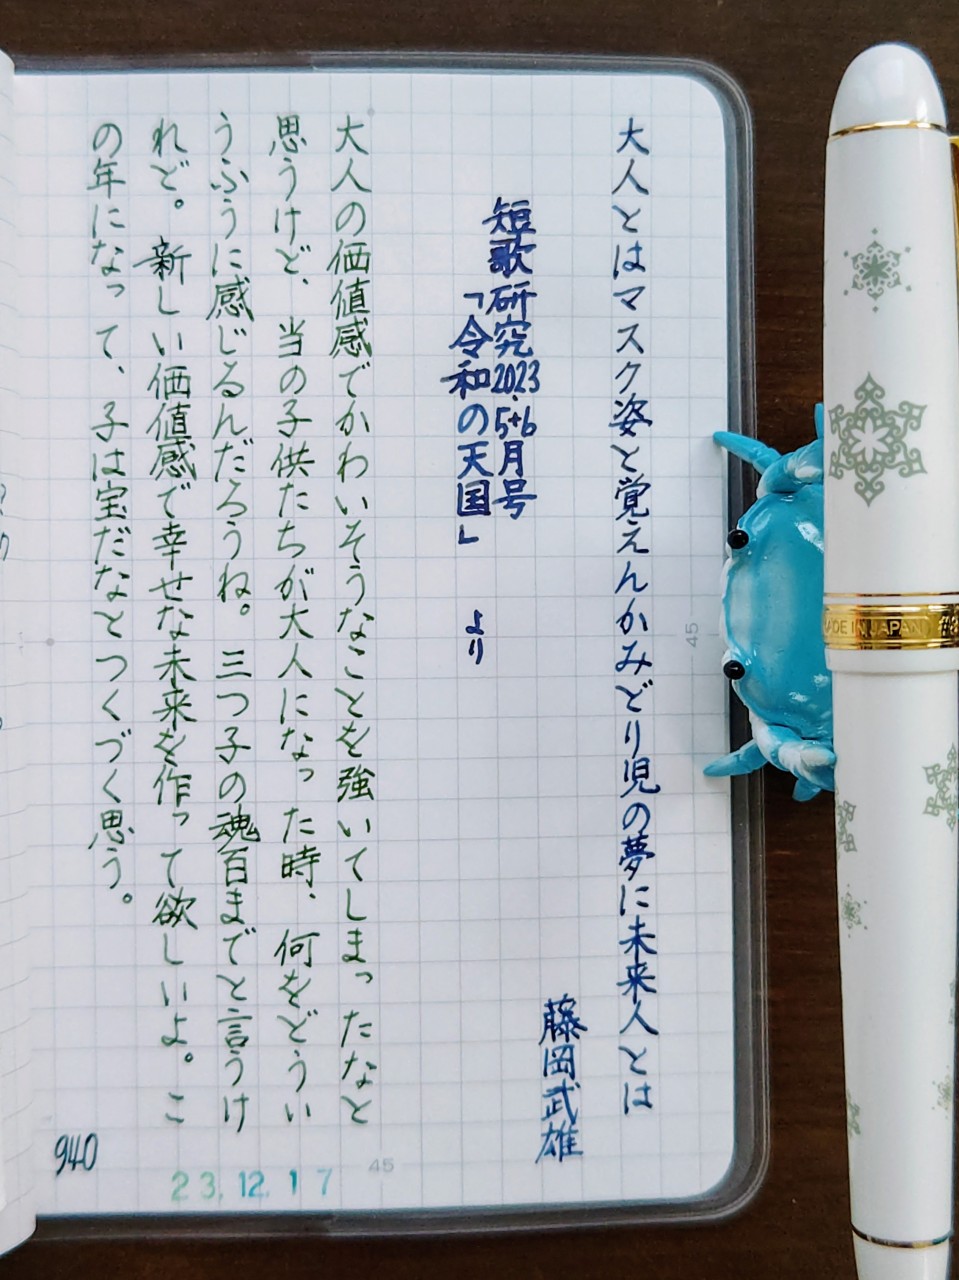 大人とはマスク姿と覚えんかみどり児の夢に未来人とは
藤岡武雄
短歌研究2023.5+6月号
「令和の天国」 より
大人の価値感でかわいそうなことを強いてしまったなと
思うけど、当の子供たちが大人になった時、何をどうい
うふうに感じるんだろうね。三つ子の魂百までと言うけ
れど。新しい価値感で幸せな未来を作って欲しいよ。こ
の年になって、子は宝だなとつくづく思う。
940
23.12.17
45
45
MADE IN JAPAN